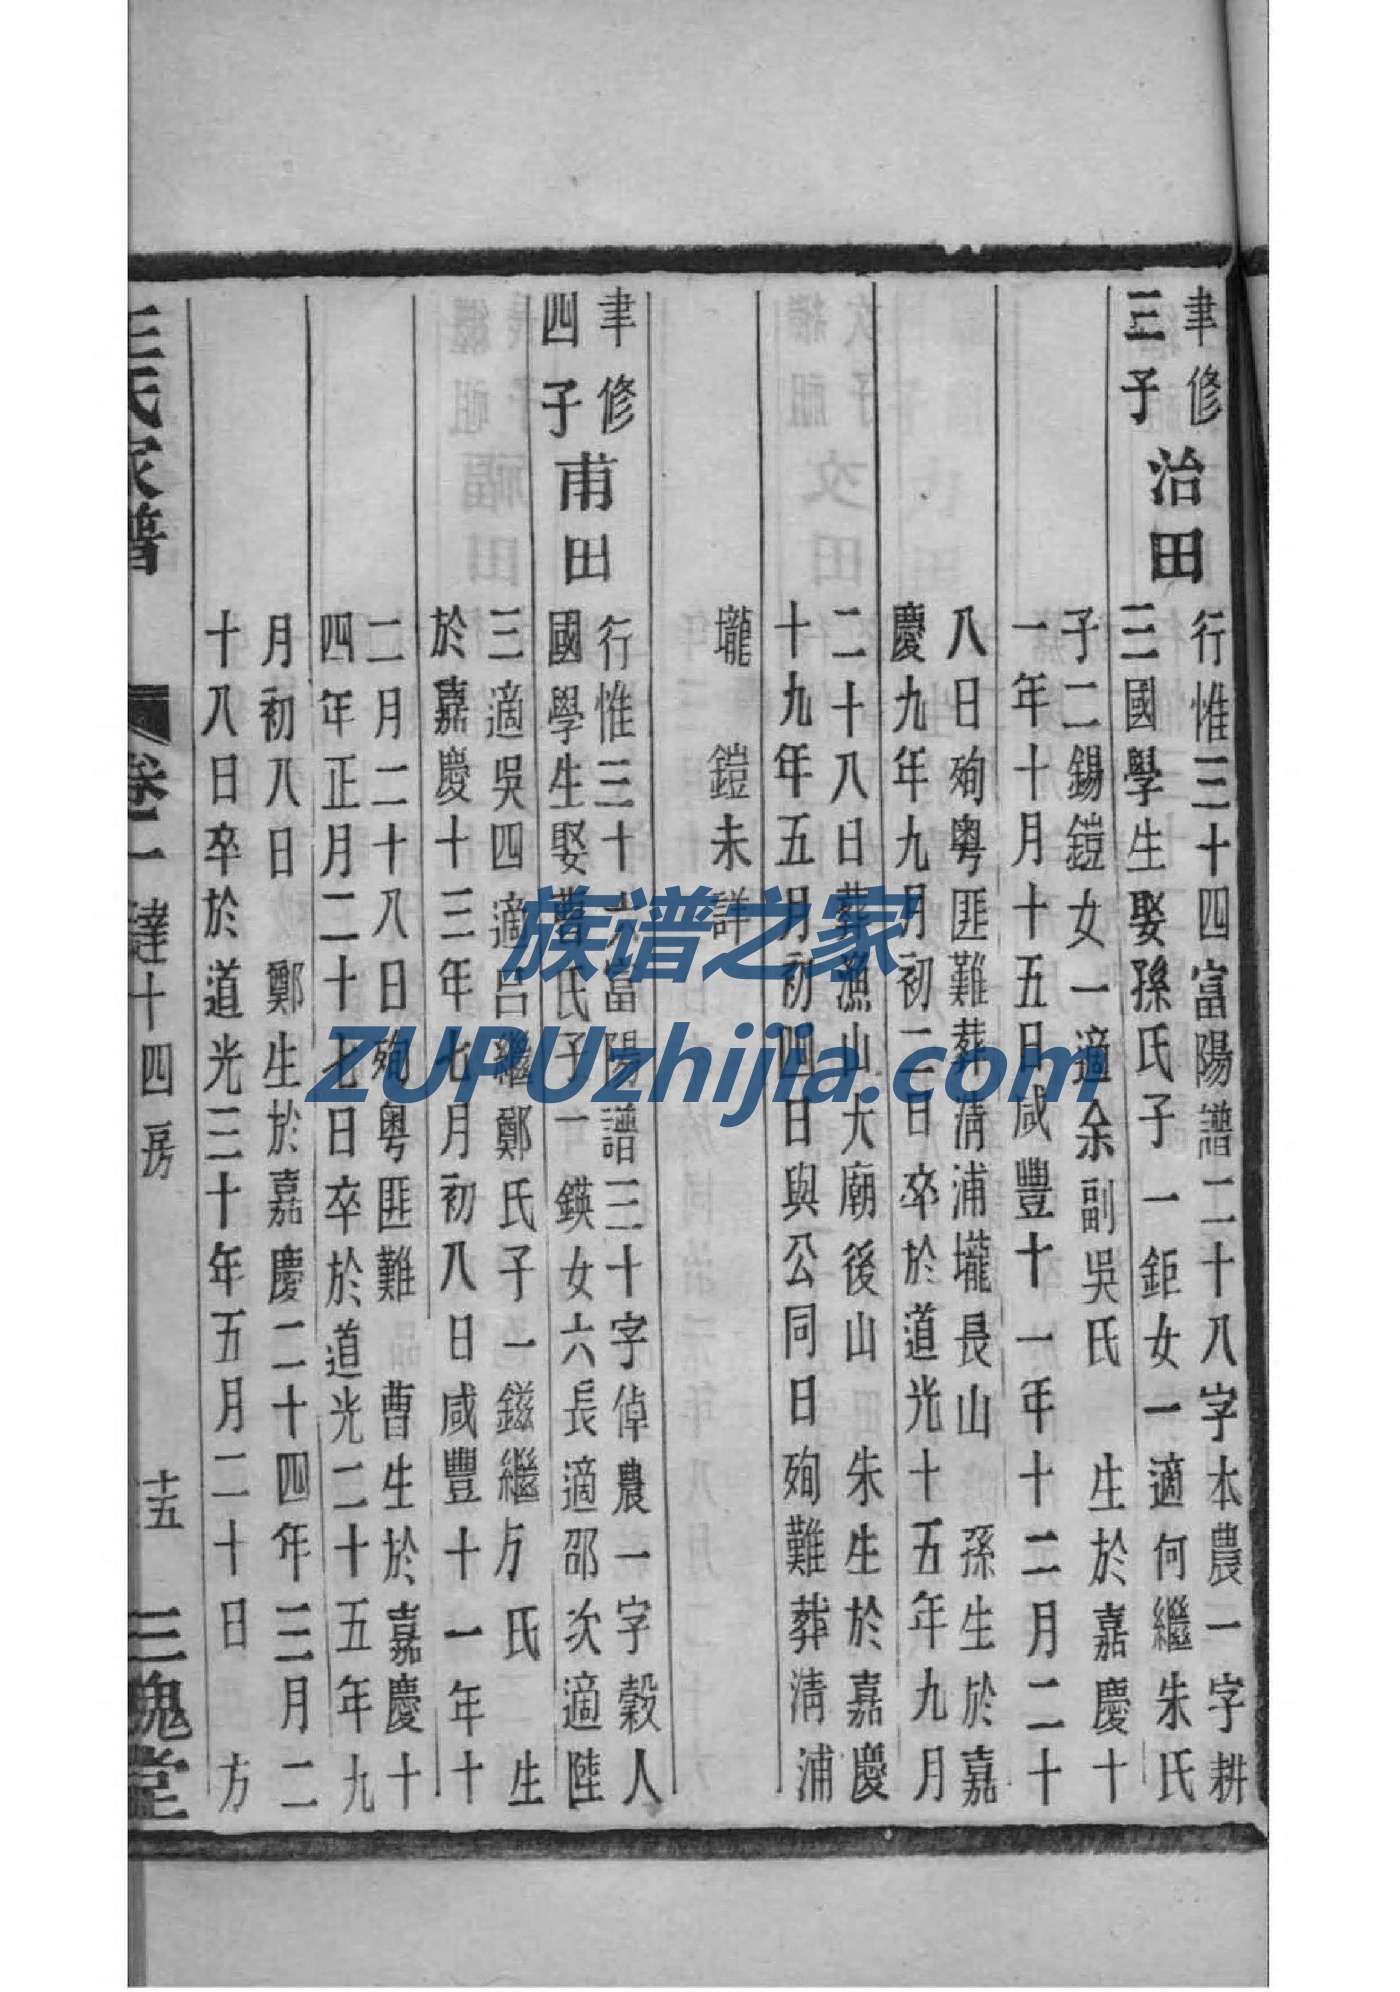 聿修
三子
治田
行惟三十四富陽譜二十八字本農一字耕
三國學生娶孫氏子一鉅女一適何繼朱氏
子二錫鎧女一適余副吳氏 生於嘉慶十
一年十月十五日咸豐十一年十二月二十
八日殉粵匪難葬淸浦壠長山 孫生於嘉
慶九年九月初二日卒於道光十五年九月
二十八日葬漁山大廟後山 朱生於嘉慶
十九年五月初四日與公同日殉難葬淸浦
壠 鎧未詳
聿修
四子
甫田
行惟三十六富陽譜三十字倬農一字穀人
國學生娶曹氏子一鍈女六長適邵次適陸
三適吳四適呂繼鄭氏子一鎡繼方氏 生
於嘉慶十三年七月初八日咸豐十一年十
二月二十八日殉粵匪難 曹生於嘉慶十
四年正月二十七日卒於道光二十五年九
月初八日 鄭生於嘉慶二十四年三月二
十八日卒於道光三十年五月二十日 方
王氏家譜 卷一 達十四房 十五 三槐堂
族谱之家
ZUPUzhijia.com